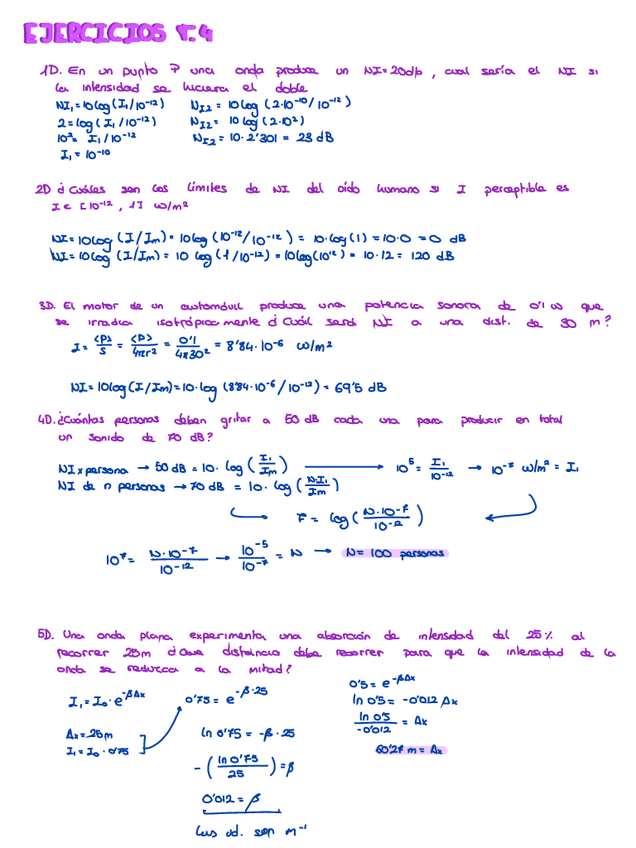 EJERCICIOS T.4
1D. En un punto P una onda produce un NI=20db, cual sería el NI si
la intensidad se hiciera el doble
NI₁=10log(I₁/10⁻¹²) N_I2 = 10log(2·10⁻¹⁰/10⁻¹²)
2=log(I₁/10⁻¹²) N_I2 = 10log(2·10²)
10²= I₁/10⁻¹² N_I2 = 10·2'301 = 23 dB
I₁ = 10⁻¹⁰
2D ¿Cuáles son los límites de NI del oído humano si I perceptible es
I ∈ [10⁻¹², 1] W/m²
NI=10log(I/Im)=10log(10⁻¹²/10⁻¹²) = 10·log(1) = 10·0 = 0 dB
NI=10log(I/Im) = 10 log(1/10⁻¹²)=10log(10¹²) = 10·12 = 120 dB
3D. El motor de un automóvil produce una potencia sonora de 0'1 W que
se irradia isotrópicamente ¿Cuál será NI a una dist. de 30 m?
I = <P>/S = <P>/4πr² = 0'1/4π30² = 8'84·10⁻⁶ W/m²
NI=10log(I/Im)=10·log(8'84·10⁻⁶/10⁻¹²) = 69'5 dB
4D. ¿Cuántas personas deben gritar a 50 dB cada una para producir en total
un sonido de 70 dB?
NI x persona → 50 dB = 10·log(I₁/Im) → 10⁵ = I₁/10⁻¹² → 10⁻⁷ W/m² = I₁
NI de n personas → 70 dB = 10·log(N·I₁/Im)
7 = log(N·10⁻⁷/10⁻¹²)
10⁷ = N·10⁻⁷/10⁻¹² → 10⁻⁵/10⁻⁷ = N → N= 100 personas
5D. Una onda plana experimenta una absorción de intensidad del 25% al
recorrer 25m ¿Que distancia debe recorrer para que la intensidad de la
onda se reduzca a la mitad?
I₁=I₀·e^-βΔx 0'75 = e^-β·25 0'5 = e^-βΔx
ln 0'5 = -0'012 Δx
Δx=25m ln 0'75 = -β·25 ln 0'5/-0'012 = Δx
I₁=I₀·0'75
-(ln 0'75/25)=β 60'27 m = Δx
0'012 = β
Las ud. son m⁻¹